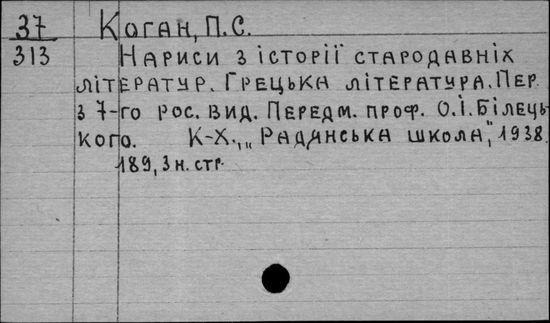 37 Коган, П.С.
313 Нариси з історії стародавніх
літератур. Грецька література. Пер.
з 7-го рос. вид. Передм. проф. О.І. Білець-
кого. К-Х., „Радянська школа", 1938.
189, 3 н. стр.